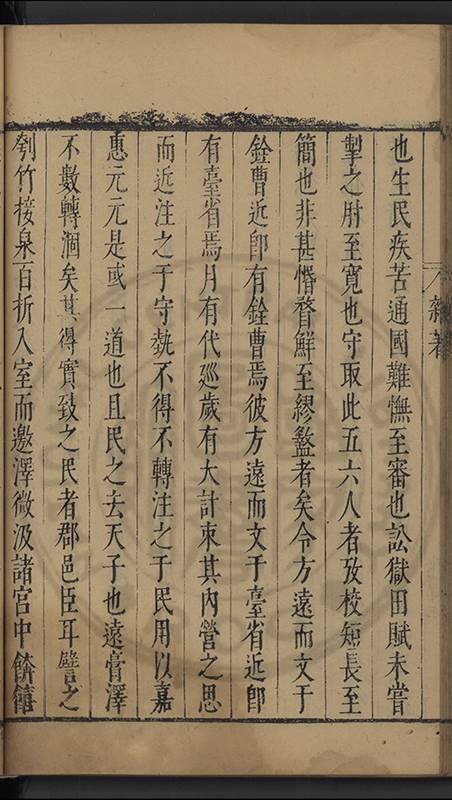 雜著
也生民疾苦通國難憮至審也訟獄田賦未嘗
掣之肘至寛也守取此五六人者攷校短長至
簡也非甚惛瞀鮮至繆盭者矣令方遠而文于
銓曹近卽有銓曹焉彼方遠而文于臺省近卽
有臺省焉月有代廵歲有大計束其內營之思
而近注之于守埶不得不轉注之于民用以嘉
惠元元是或一道也且民之去天子也遠膏澤
不數轉涸矣其得實致之民者郡邑臣耳譬之
刳竹接泉百折入室而邀澤微汲諸宮中餴饎